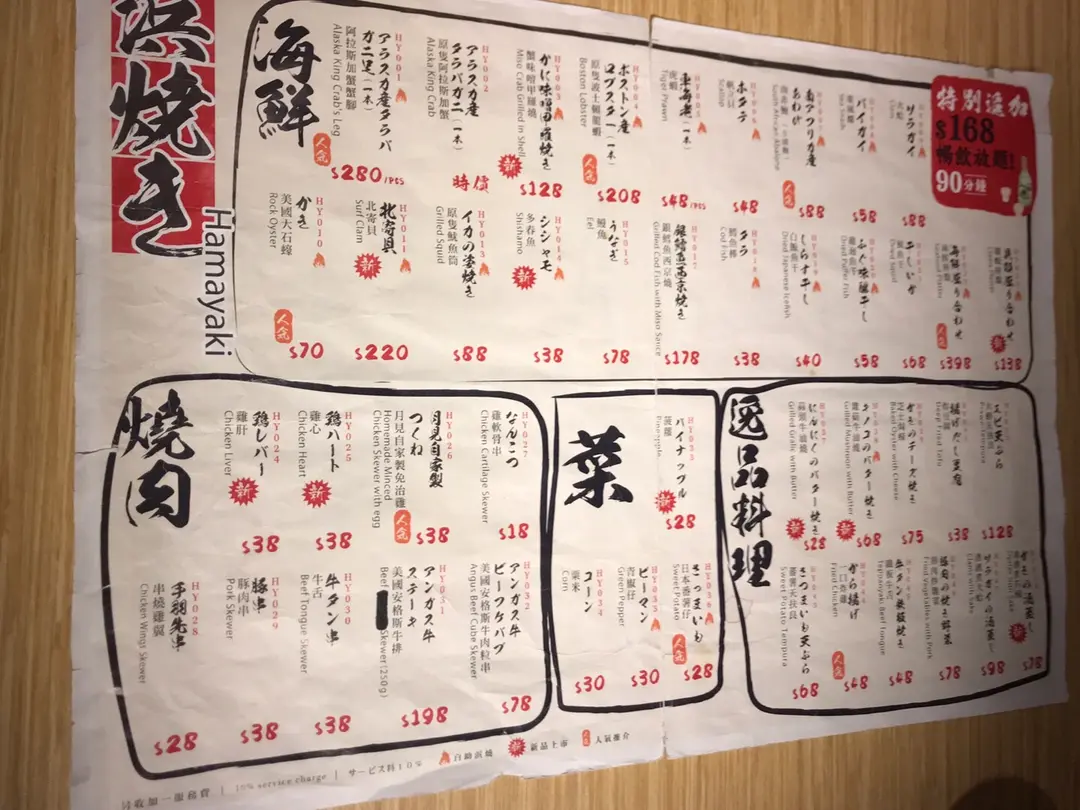 浜焼き
Hamayaki
特別追加
$168
暢飲放題!
90分鐘
海鮮
HY001
アラスカ産タラバ
ガニ足(一本)
阿拉斯加蟹腳
Alaska King Crab's Leg
人気
$280/PCS
HY002
アラスカ産
タラバガニ(一本)
原隻阿拉斯加蟹
Alaska King Crab
時價
HY003
かに味噌甲羅焼き
蟹味噌甲羅燒
Miso Crab Grilled in Shell
新
$128
HY004
ボストン産
ロブスター(一本)
原隻波士頓龍蝦
Boston Lobster
人気
$208
虎蝦
Tiger Prawn
$48/PCS
ホタテ
帆立貝
Scallop
$48
南アフリカ産
あわび
African Abalone
人気
$88
バイガイ
$58
サラガイ
$88
HY010
かき
美國大石蠔
Rock Oyster
人気
$70
HY011
北寄貝
北寄貝
Surf Clam
新
$220
HY013
イカの姿焼き
原隻魷魚筒
Grilled Squid
$88
HY014
シシャモ
多春魚
Shishamo
新
$38
HY015
うなぎ
鰻魚
$78
HY017
銀鱈魚西京焼き
銀鱈魚西京燒
Grilled Cod Fish with Miso Sauce
$178
タラ
鱈魚棒
Cod Fish
$38
しらす干し
白飯魚干
Dried Japanese Icefish
$40
ふぐ味醂干し
Dried Puffer Fish
$58
$68
海鮮盛り合わせ
人気
$398
盛り合わせ
新
$138
焼肉
HY024
鶏レバー
雞肝
Chicken Liver
新
$38
HY025
鶏ハート
雞心
Chicken Heart
新
$38
HY026
月見自家製
つくね
月見自家製免治雞
Homemade Minced
Chicken Skewer with egg
人気
$38
なんこつ
雞軟骨串
Chicken Cartilage Skewer
$18
HY028
手羽先串
串燒雞翼
Chicken Wings Skewer
$28
HY029
豚串
豚肉串
Pork Skewer
$38
HY030
牛タン串
牛舌
Beef Tongue Skewer
$38
HY031
アンガス牛
ステーキ
美國安格斯牛排
Beef Skewer(250g)
$198
HY032
アンガス牛
ビーフケバブ
美國安格斯牛肉粒串
Angus Beef Cube Skewer
$78
菜
HY033
パイナップル
菠蘿
Pineapple
新
$28
HY034
コーン
粟米
Corn
$30
ピーマン
青椒仔
Green Pepper
$30
さつまいも
日本番薯仔
Sweet Potato
人気
$28
逸品料理
にんにくのバター焼き
蒜頭牛油燒
Grilled Garlic with Butter
新
$28
キノコのバター焼き
Grilled Mushroom with Butter
新
$68
かきのチーズ焼き
芝士焗蠔
Baked Oyster with Cheese
$75
揚げだし豆腐
Deep Fried Tofu
$38
エビ天ぷら
$128
さつまいも天ぷら
番薯天扶良
Sweet Potato Tempura
$68
から揚げ
Fried Chicken
人気
$48
牛タン鉄板焼き
鐵板牛舌
Teppanyaki Beef Tongue
$48
$78
サラガイの酒蒸し
$98
の酒蒸し
新
$78
另收加一服務費 | 10% service charge | サービス料10%
自助浜燒
新 新品上市
人気 人氣推介